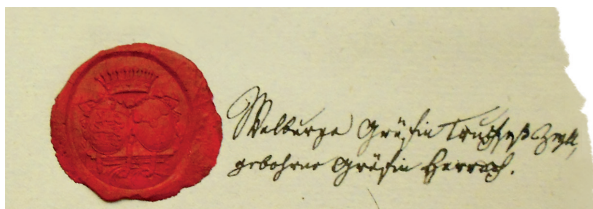 Walburga Gräfin Truchseß Zeyll,
gebohrne Gräfin Harrach.